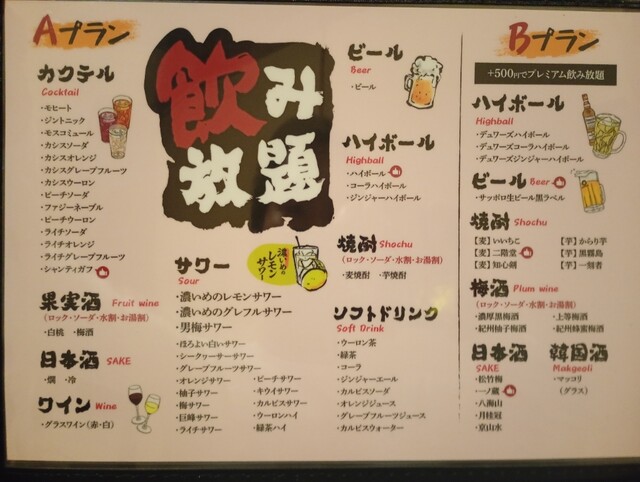 Aプラン
カクテル
Cocktail
・モヒート
・ジントニック
・モスコミュール
・カシスソーダ
・カシスオレンジ
・カシスグレープフルーツ
・カシスウーロン
・ピーチソーダ
・ファジーネーブル
・ピーチウーロン
・ライチソーダ
・ライチオレンジ
・ライチグレープフルーツ
・シャンティガフ
果実酒 Fruit wine
(ロック・ソーダ・水割・お湯割)
・白桃 ・梅酒
日本酒 SAKE
・燗 ・冷
ワイン Wine
・グラスワイン(赤・白)
飲み
放題
サワー
Sour
濃いめの
レモン
サワー
・濃いめのレモンサワー
・濃いめのグレフルサワー
・男梅サワー
・ほろよい白いサワー
・シークヮーサーサワー
・グレープフルーツサワー
・オレンジサワー
・柚子サワー
・梅サワー
・巨峰サワー
・ライチサワー
・ピーチサワー
・キウイサワー
・カルピスサワー
・ウーロンハイ
・緑茶ハイ
ビール
Beer
・ビール
ハイボール
Highball
・ハイボール
・コーラハイボール
・ジンジャーハイボール
焼酎 Shochu
(ロック・ソーダ・水割・お湯割)
・麦焼酎 ・芋焼酎
ソフトドリンク
Soft Drink
・ウーロン茶
・緑茶
・コーラ
・ジンジャーエール
・カルピスソーダ
・オレンジジュース
・グレープフルーツジュース
・カルピスウォーター
Bプラン
+500円でプレミアム飲み放題
ハイボール
Highball
・デュワーズハイボール
・デュワーズコーラハイボール
・デュワーズジンジャーハイボール
ビール Beer
・サッポロ生ビール黒ラベル
焼酎 Shochu
(ロック・ソーダ・水割・お湯割)
【麦】いいちこ 【芋】からり芋
【麦】二階堂 【芋】黒霧島
【麦】知心剣 【芋】一刻者
梅酒 Plum wine
(ロック・ソーダ・水割・お湯割)
・濃厚黒梅酒 ・上等梅酒
・紀州柚子梅酒 ・紀州蜂蜜梅酒
日本酒
SAKE
・松竹梅
・一ノ蔵
・八海山
・月桂冠
・京山水
韓国酒
Makgeoli
・マッコリ
(グラス)